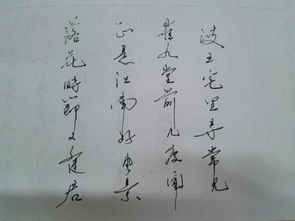 岐王宅里寻常见
崔九堂前几度闻
正是江南好风景
落花時節又逢君